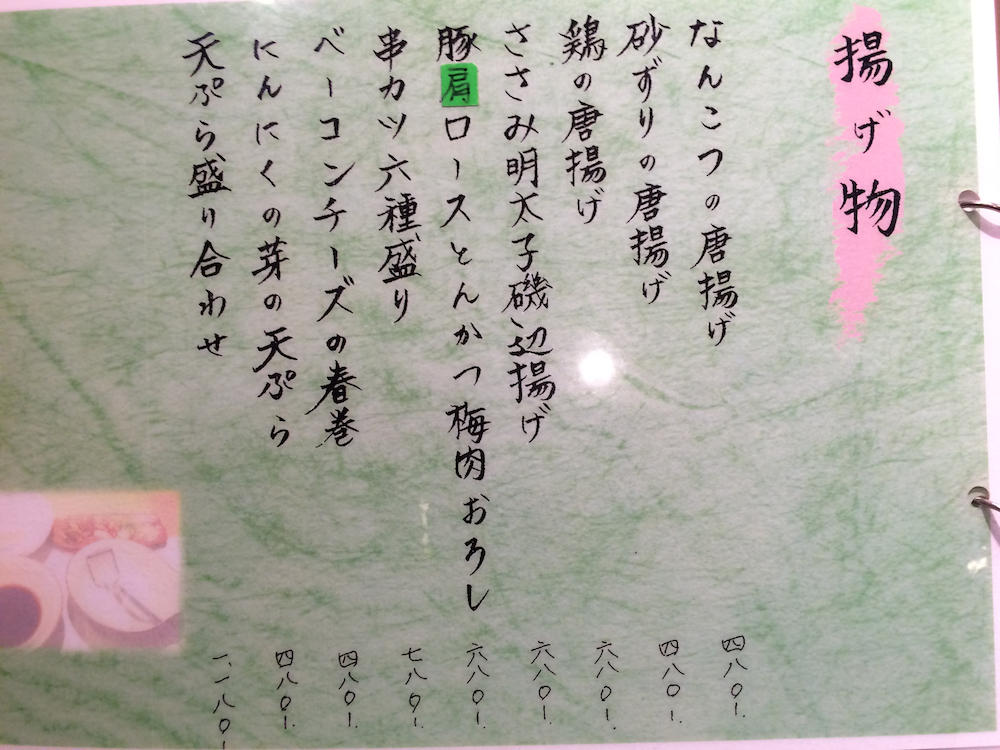 揚げ物
なんこつの唐揚げ 四八〇.
砂ずりの唐揚げ 四八〇.
鶏の唐揚げ 六八〇.
ささみ明太子磯辺揚げ 六八〇.
豚肩ロースとんかつ梅肉おろし 六八〇.
串カツ六種盛り 七八〇.
ベーコンチーズの春巻 四八〇.
にんにくの芽の天ぷら 四八〇.
天ぷら盛り合わせ 一、一八〇.